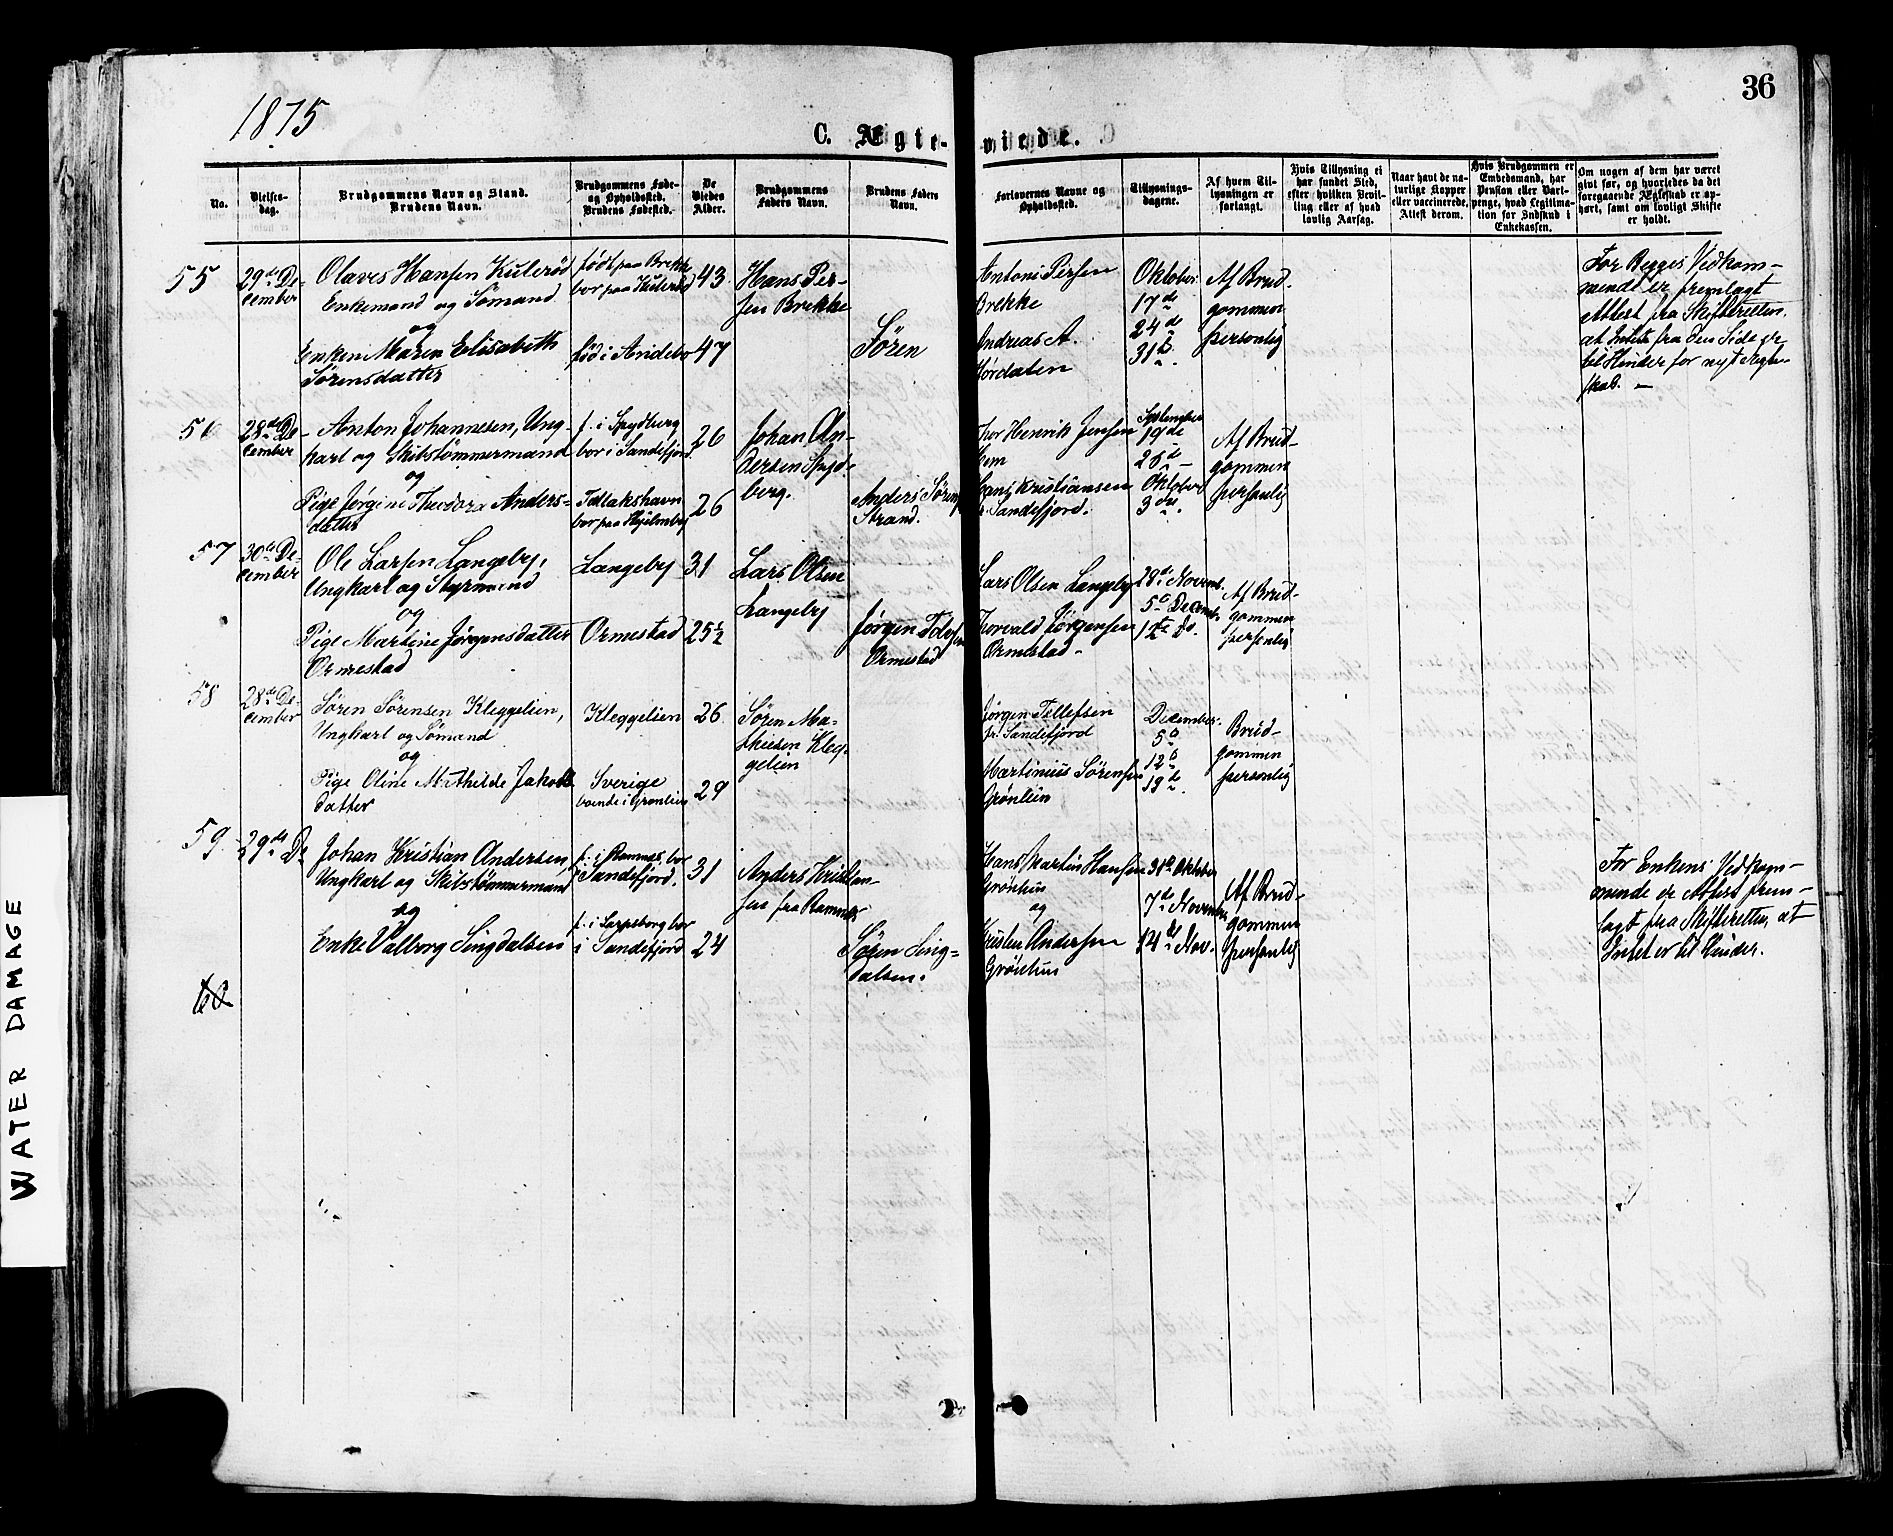 36
1875
C. Ægteviede.
No.
Vielses-
dag.
Brudgommens Navn og Stand.
Brudens Navn.
Brudgommens Føde-
og Opholdssted.
Brudens Fødested.
De
Viedes
Alder.
Brudgommens
Faders Navn.
Brudens Faders
Navn.
Forlovernes Navne og
Opholdssted.
Tillysnings-
dagene.
Af hvem Til-
lysningen er
forlangt.
Hvis Tillysning ei
har fundet Sted,
efter hvilken Bevil-
ling eller af hvad
lovlig Aarsag.
Naar havt de na-
turlige Kopper
eller vaccinerede,
Attest derom.
Hvis Brudgommen er
Embedsmand, har
Pension eller Vart-
penge, hvad Legitima-
tion for Indskud i
Enkekassen.
Om nogen af dem har været
givt før, og hvorledes da det
foregaaende Ægteskab er op-
hørt, samt om lovligt Skifte
er holdt.
55
29de De-
cember
Olaves Hansen Kulerød
Enkemand og Sømand
og
Enken Maren Elisabeth
Sørensdatter
født paa Brekke
bor paa Kulerød
fød i Andebo
43
47
Hans Per-
sen Brekke
Søren
Antoni Persen
Brekke
Andreas A.
Oktober
17de
24de
31te
Af Brud-
gommen
personlig
For Begges Vedkom-
mende er fremlagt
Attest fra Skifteretten,
at Intet fra den Side er
til Hinder for nyt Ægte-
skab. —
56
28de De-
cember
Anton Johannesen, Ung-
karl og Skibstømmermand
og
Pige Jørgine Theodora Anders-
datter
f. i Spydberg
bor i Sandefjord.
bor paa Hjelmby
26
26
Johan An-
dersen Spyd-
berg.
Anders Søren
Strand.
Thor Henrik Jensen
Hem
Hans Kristiansen
fr. Sandefjord.
September
19de
26de —
Oktober
3die.
Af Brud-
gommen
personlig
57
30te De-
cember
Ole Larsen Langeby,
Ungkarl og Styrmand
og
Pige Martine Jørgensdatter
Ormestad
Langeby
Ormestad
31
25½
Lars Olsen
Langeby
Jørgen
Ormestad
Lars Olsen Langeby
Thorvald Jørgensen
Ormestad-
28de Novem.
5te Decemb.
12te Do.
Af Brud-
gommen
personlig
58
28de De-
cember
Søren Sørensen Kleggelien,
Ungkarl og Sømand
og
Pige Oline Mathilde Jakobs
datter
Kleggelien
Sverige
boende i Grønlien
26
29
Søren Ma-
thisen Kleg-
gelien
Jørgen Tellefsen
fr. Sandefjord
Martinius Sørensen
Grønlien
December.
5te
12te
19de
Brud-
gommen
personlig
59
29de De
Johan Kristian Andersen,
Ungkarl og Skibstømmermand
og
Enke Valborg Singdalsen
f. i Ramnes, bor
i Sandefjord.
f. i Sarpsborg bor
i Sandefjord
31
24
Anders Kristian-
sen fra Ramnes
Søren Sing-
dalsen.
Hans Martin Hansen
Grønlien
og
Kristen Andersen
Grønlien
31te Oktober
7de Novemb.
14de Nov.
Af Brud-
gommen
personlig
For Enkens Vedkom-
mende er Attest frem-
lagt fra Skifteretten, at
Intet er til Hinder.
60
WATER DAMAGE